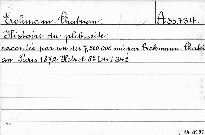 Erckmann Chatrian. A 33.734.
Histoire du plébiscite
racontée par un des 7,500.000 oui par Erckmann Chatri
an Paris 1872